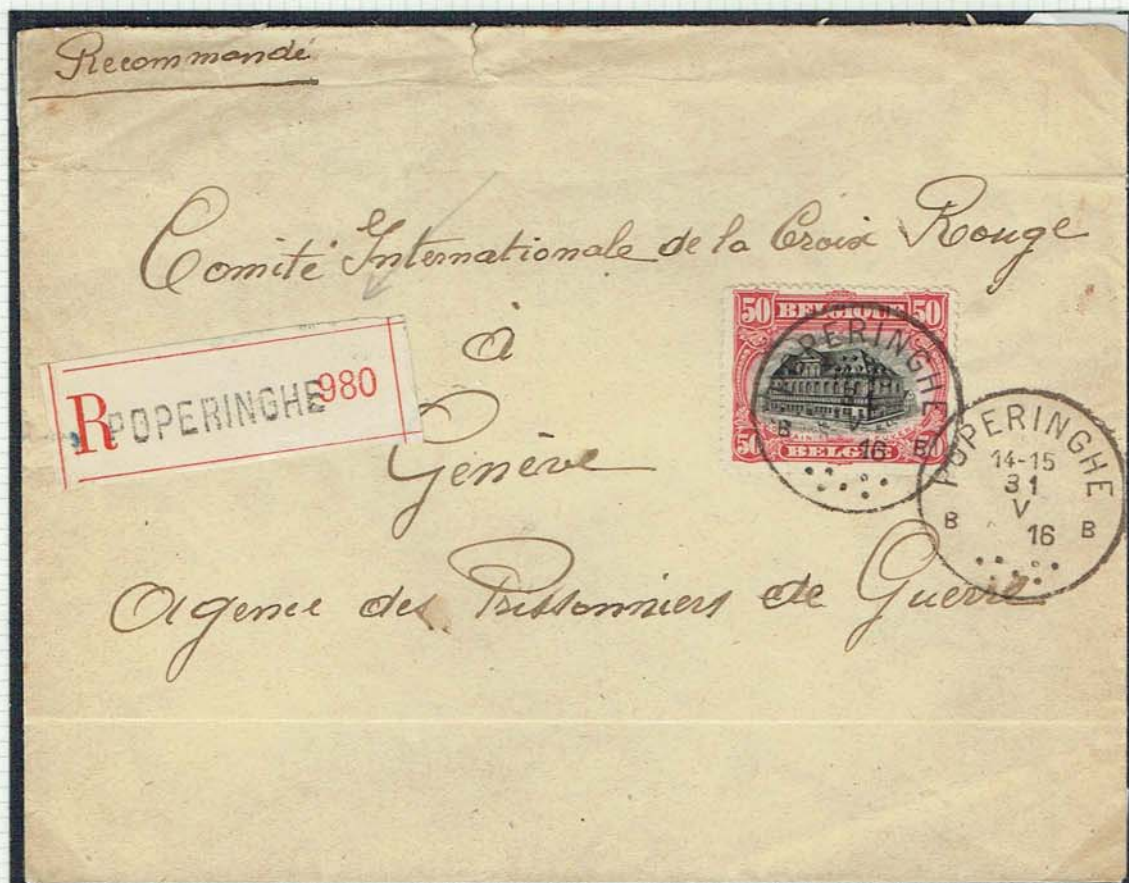 Recommandé
Comité Internationale de la Croix Rouge
à
Genève
Agence des Prissonniers de Guerre
R POPERINGHE 980
50 BELGIQUE 50
50 BELGIE
POPERINGHE
V
16
B B
POPERINGHE
14-15
31
V
16
B B